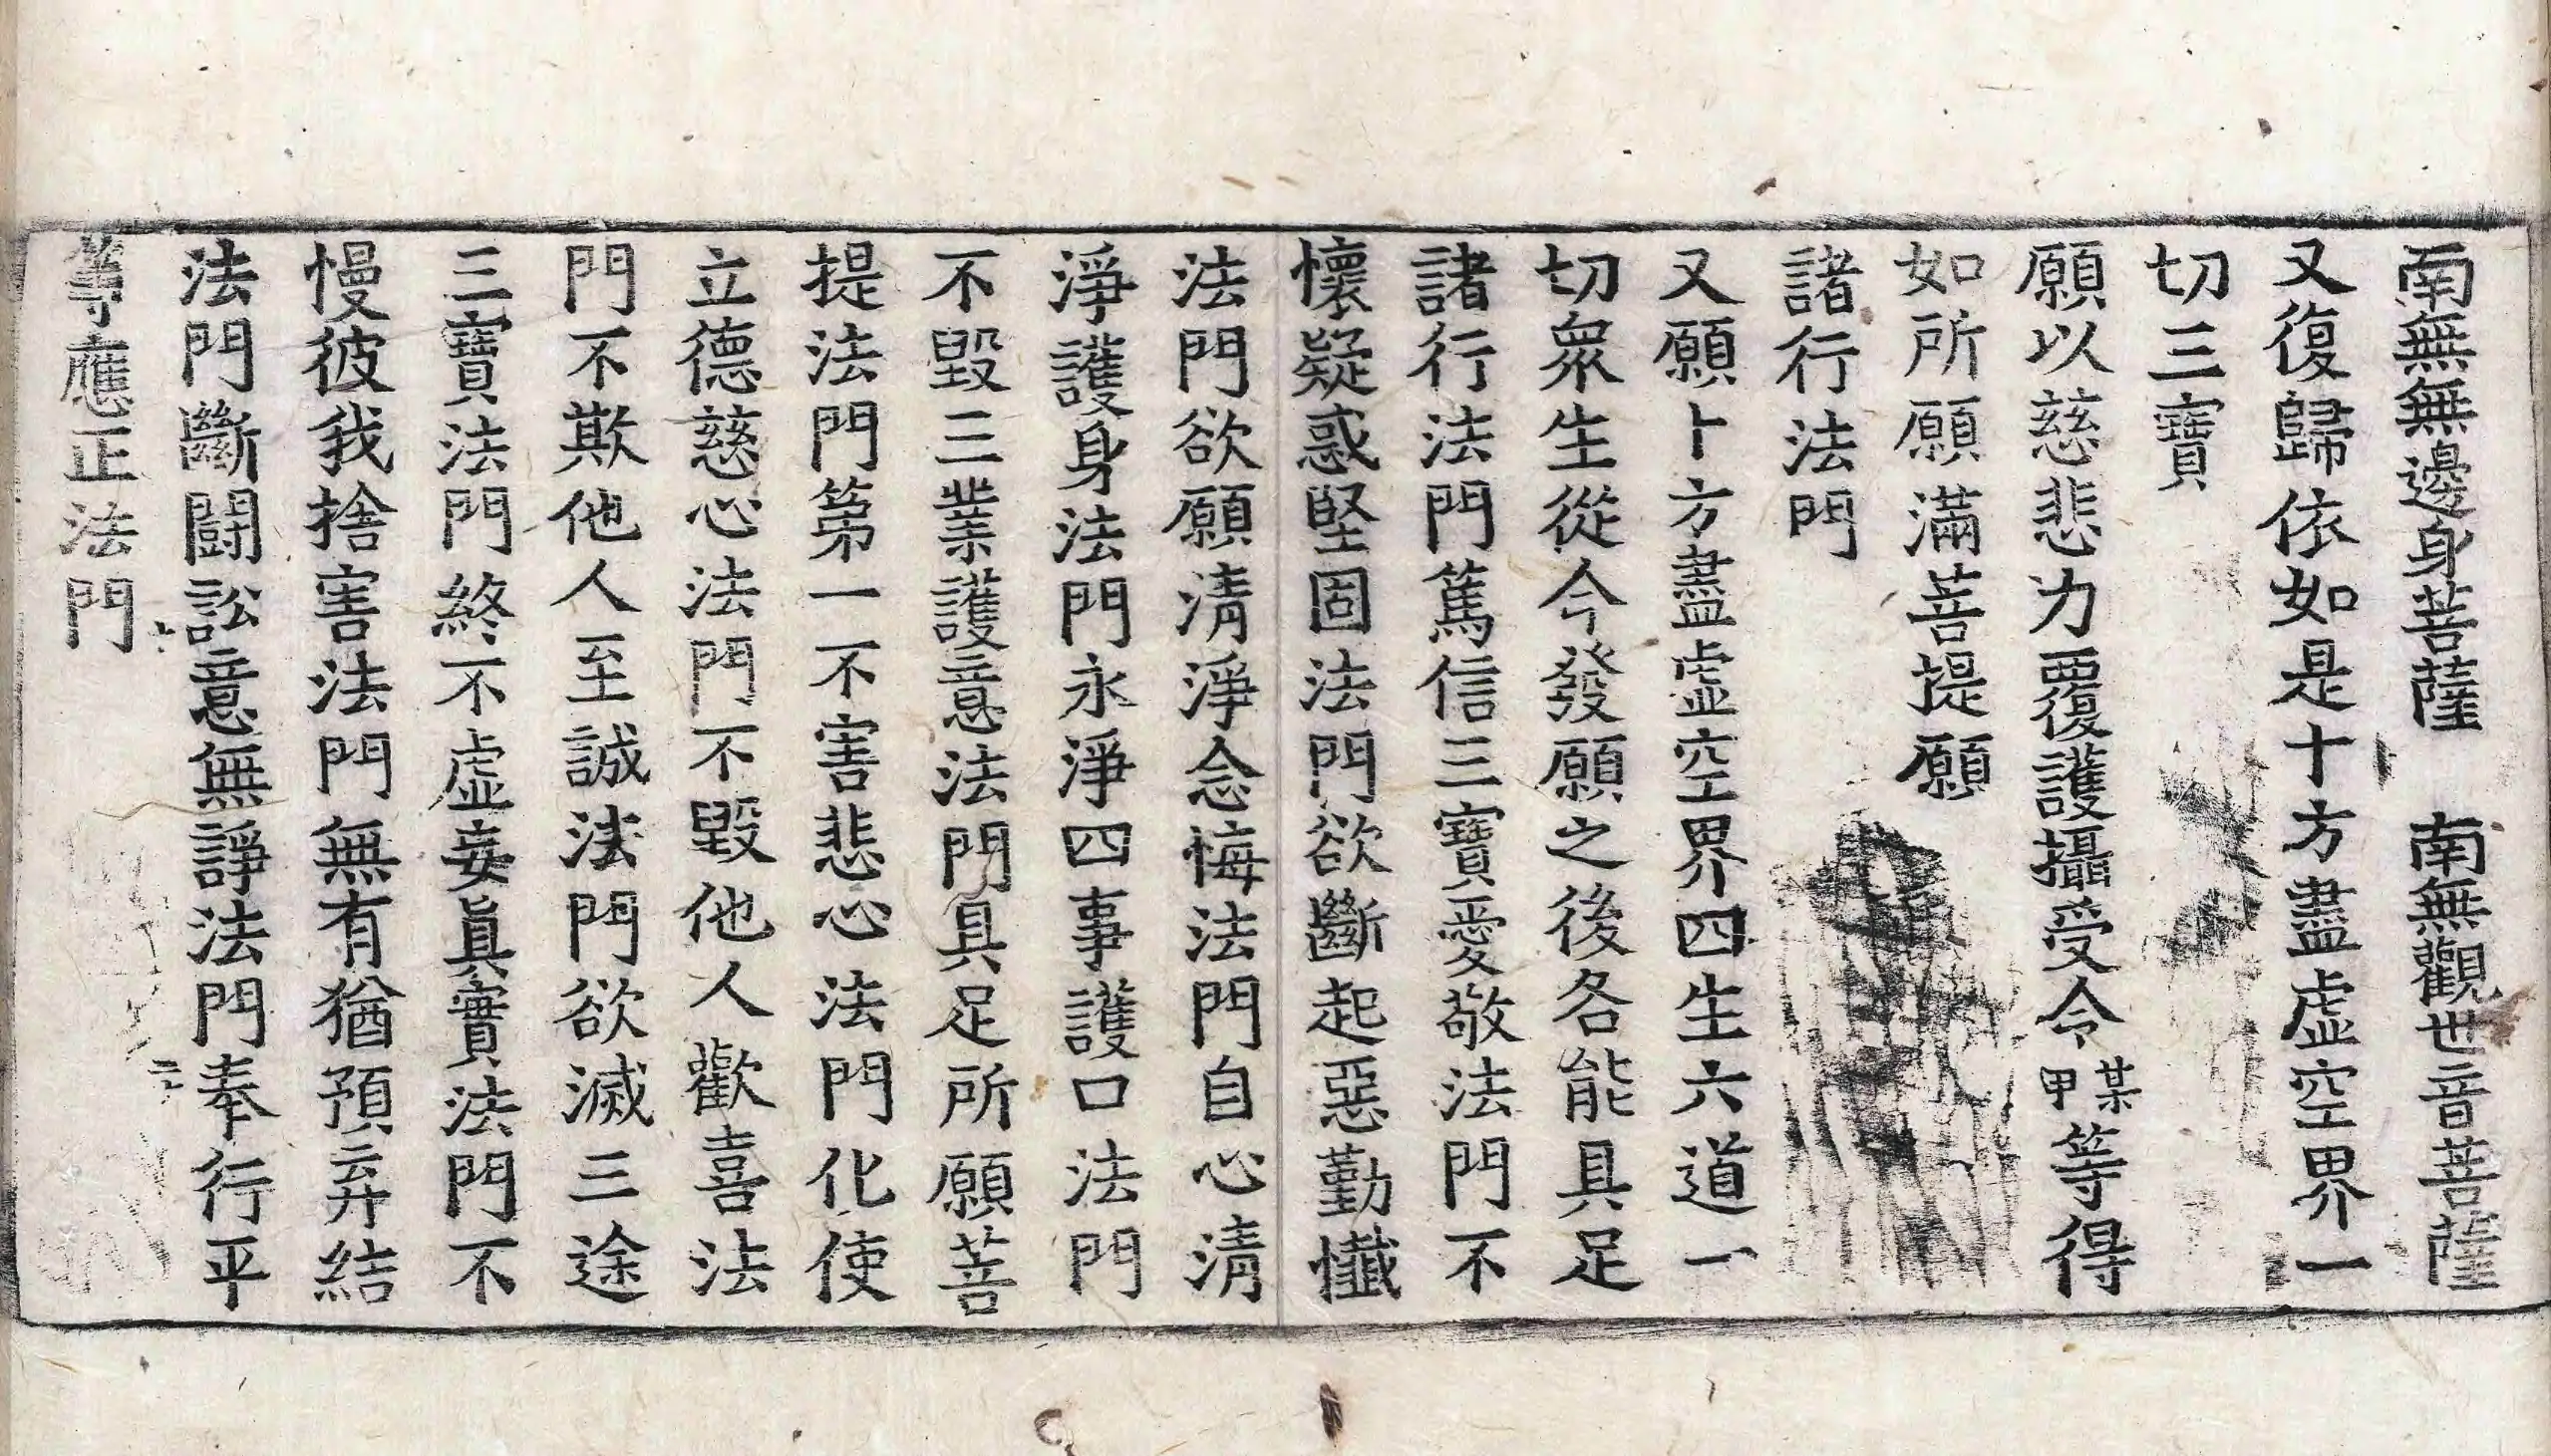 南無無邊身菩薩　南無觀世音菩薩
又復歸依如是十方盡虛空界一
切三寶
願以慈悲力覆護攝受令某甲等得
如所願滿菩提願
諸行法門
又願十方盡虛空界四生六道一
切衆生從今發願之後各能具足
諸行法門篤信三寶愛敬法門不
懷疑惑堅固法門欲斷起惡懃懺
法門欲願淸淨念悔法門自心淸
淨護身法門永淨四事護口法門
不毀三業護意法門具足所願菩
提法門第一不害悲心法門化使
立德慈心法門不毀他人歡喜法
門不欺他人至誠法門欲滅三途
三寶法門終不虛妄眞實法門不
慢彼我捨害法門無有猶預弃結
法門斷鬪訟意無諍法門奉行平
等應正法門